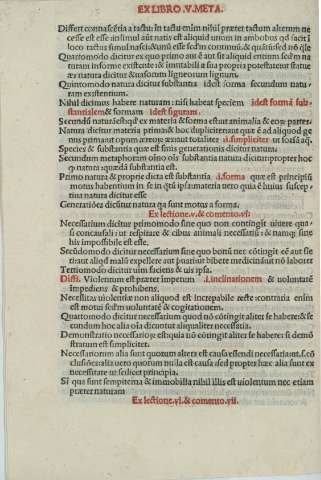 EX LIBRO .V. META.
Differt connascētia a tactu: in tactu.n. nihil præter tactum alterum ne
cesse est esse in simul aūt natis est aliquid unum in ambobus qd̄ facit i
loco tactus simul nasci & unū esse scd̄m continuū & quātū sed nō q̄le
Quartomodo dicitur ex quo primo aut ē aut fit aliquid entium scd̄m na
turam informe existente & immutabili a sua propria potestate sicut statuæ
æræ natura dicitur & uasorum ligneorum lignum.
Quintomodo natura dicitur substantia idest forma secundum natu
ram existentium.
Nihil dicimus habere naturam: nisi habeat speciem idest formā sub
stantialem & formam idest figuram.
Secundū naturā est qd̄ ex materia & forma est ut animalia & eorū partes.
Natura dicitur materia prima & hoc dupliciter aut quæ ē ad aliquod ge
nus prima ut opum æreorū æs aut totaliter .i. simpliciter ut forsā aq̄.
Species & substantia quæ est finis generationis dicitur natura
Secundum metaphoram oīno oīs substantia natura dicitur: propter hoc
q natura quædā substantia est.
Primo natura & proprie dicta est substantia .i. forma quæ est principiū
motus habentium in se in qūtū ipsa: materia uero quia ē huius suscep
tiua natura dicitur esse
Generatiōes dicūtur natura qa sunt motus a forma.
Ex lectione .v. & comento .vi:
Necessarium dicitur primomodo sine quo non contingit uiuere qua
si concausali: ut respirare & cibus animali necessariū: & namq; sine
his impossibile est esse.
Secūdomodo dicitur necessarium sine quo bonū nec cōtingit eē aut fie
ri aut aliqd̄ malū expellere aut priuari ut bibere medicinā ut nō laboret
Tertiomodo dicitur uim faciens & uis ipsa.
Diffi. Violentum est præter impetum .i. inclinationem & uoluntatē
impediens & prohibens.
Necessitas uiolentiæ non aliquod est increpabile recte contraria enim
est motui scd̄m uoluntatē & cogitationem.
Quartomodo dicitur necessarium quod nō cōtingit aliter se habere & se
cundum hoc alia oīa dicuntur aliqualiter necessaria.
Demonstratio necessariorū est: quia nō contingit aliter se habere si demō
stratum simpliciter est.
Necessariorum alia sunt quorum alterū est causa essendi necessaria ut .s. cō
clusiōes alia uero quorum nulla est causa sed propter hæc alia sunt ex
necessitate ut scilicet principia.
Si qua sunt sempiterna & immobilia nihil illis est uiolentum nec etiam
præter naturam
Ex lectione .vi. & comento .vii.